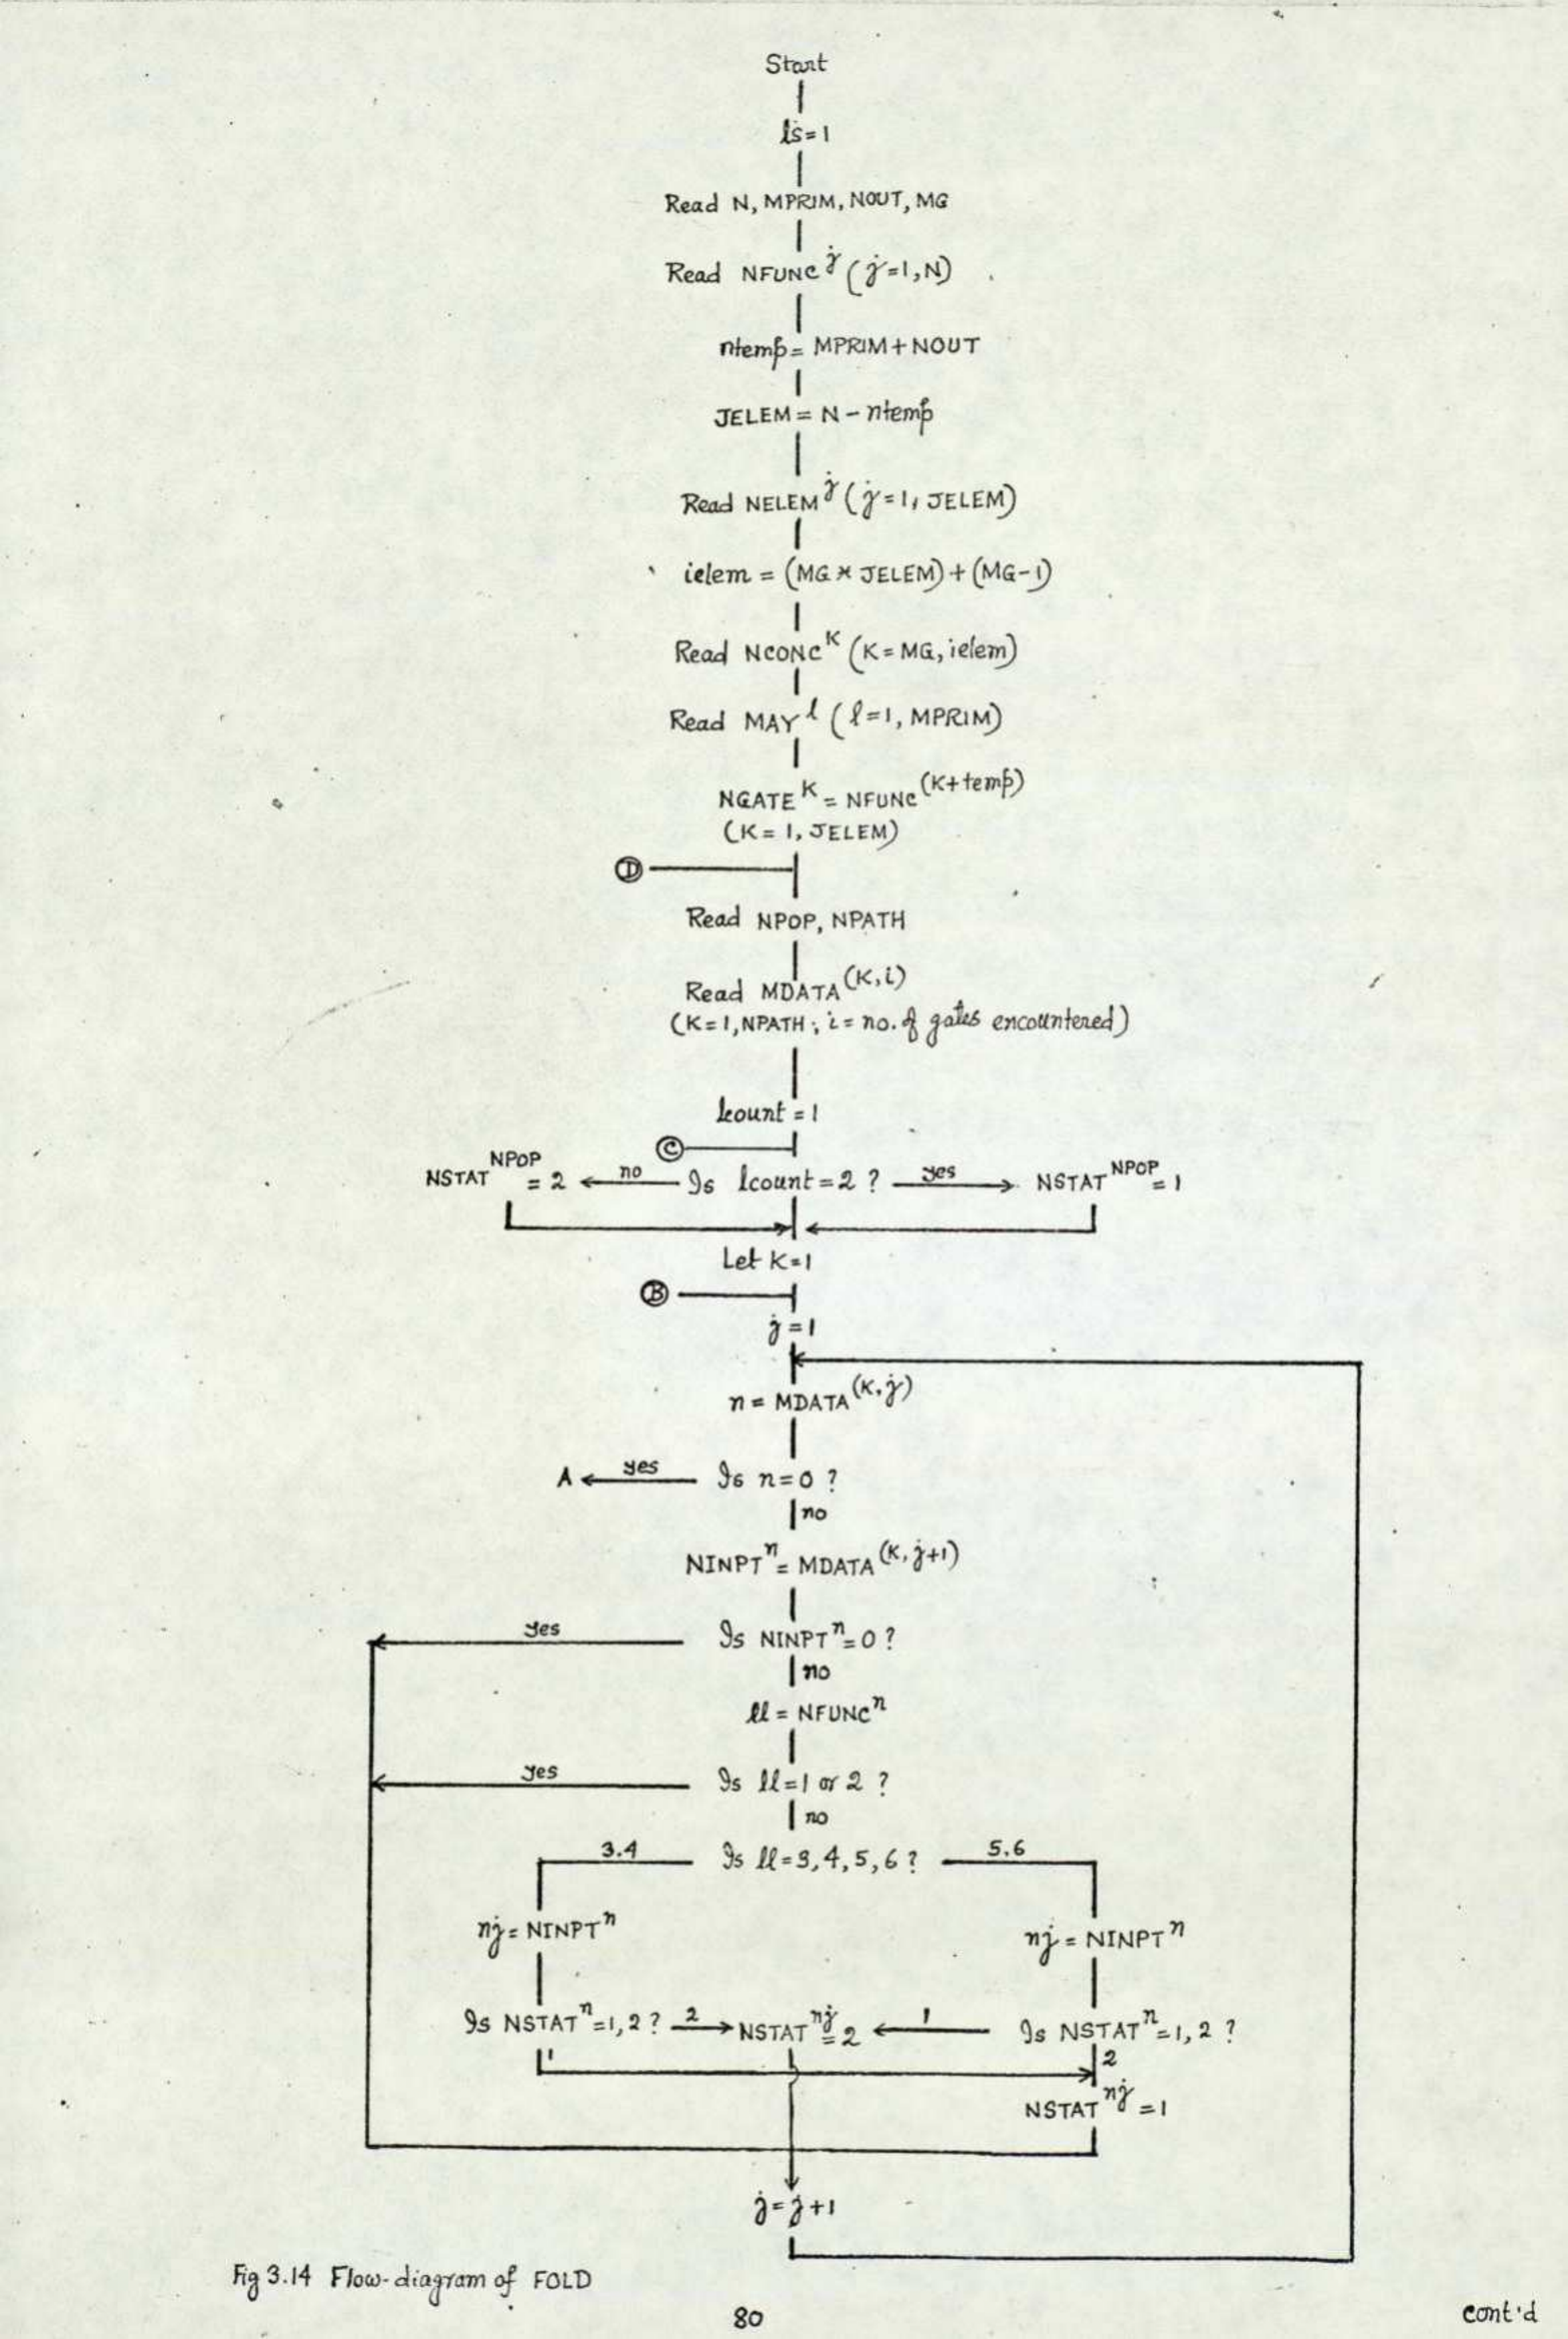 Start
ls=1
Read N, MPRIM, NOUT, MG
Read NFUNC^j (j=1,N)
ntemp = MPRIM+NOUT
JELEM = N - ntemp
Read NELEM^j (j=1, JELEM)
ielem = (MG * JELEM) + (MG-1)
Read NCONC^K (K=MG, ielem)
Read MAY^l (l=1, MPRIM)
NGATE^K = NFUNC^(K+temp)
(K= 1, JELEM)
D
Read NPOP, NPATH
Read MDATA^(K,i)
(K=1, NPATH; i= no. of gates encountered)
lcount = 1
C
NSTAT^NPOP = 2 no Is lcount=2 ? yes NSTAT^NPOP = 1
Let K=1
B
j=1
n = MDATA^(K,j)
A yes Is n=0 ?
no
NINPT^n = MDATA^(K,j+1)
yes Is NINPT^n=0 ?
no
ll = NFUNC^n
yes Is ll=1 or 2 ?
no
3.4 Is ll=3,4,5,6? 5.6
nj = NINPT^n nj = NINPT^n
Is NSTAT^n=1,2? 2 NSTAT^nj = 2 1 Is NSTAT^n=1,2 ?
1 2
NSTAT^nj = 1
j=j+1
Fig 3.14 Flow-diagram of FOLD
80
cont'd